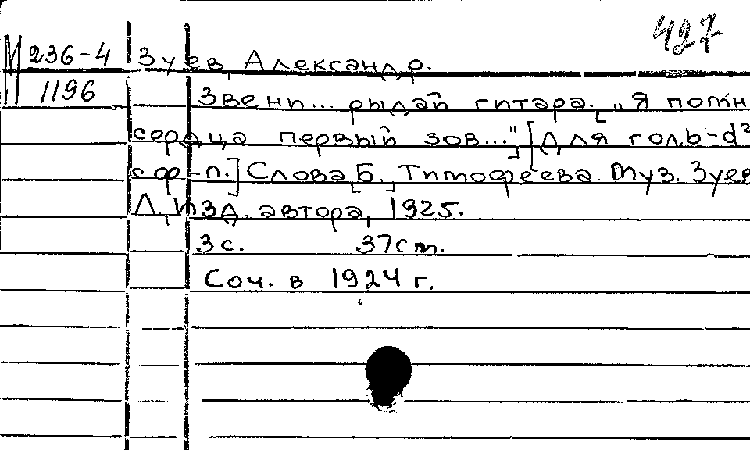 427
М 236-4 Зуев, Александр.
1196 Звени... рыдай гитара. „Я помн
сердца первый зов..." [Для гол. b-d²
с ф-п.] Слова Б. Тимофеева. Муз. Зуев
Л, Изд. автора, 1925.
3 с. 37 см.
Соч. в 1924 г.